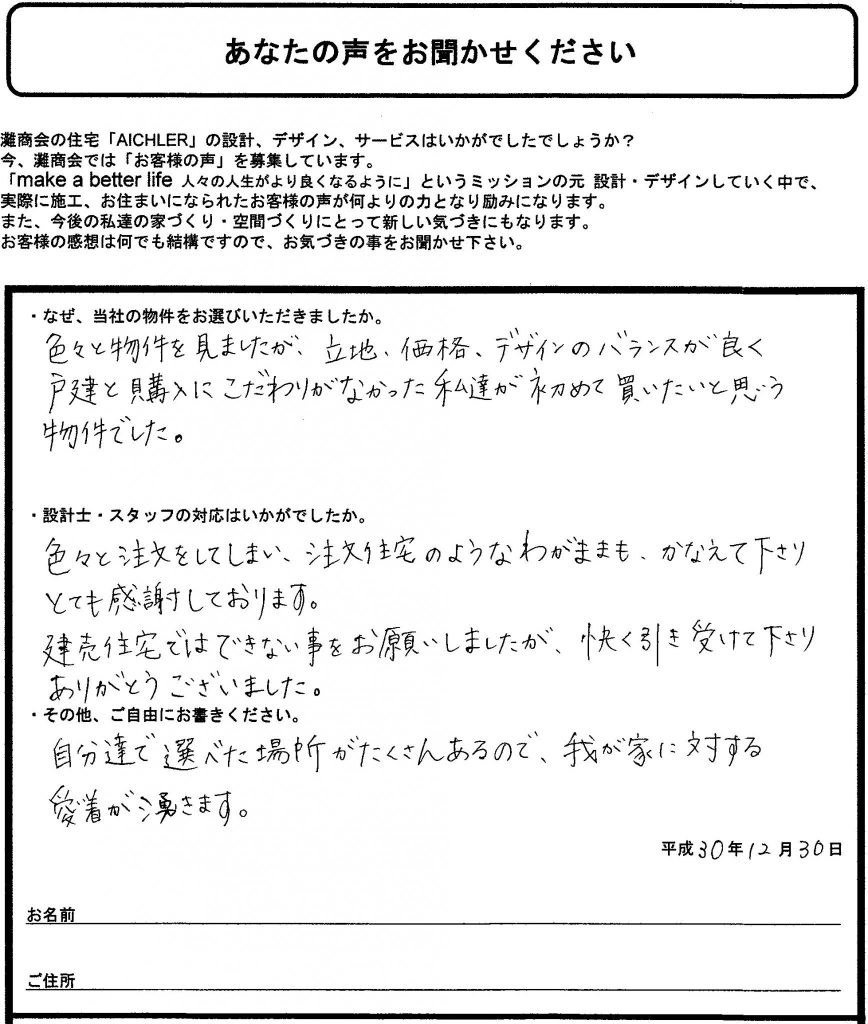 あなたの声をお聞かせください
灘商会の住宅「AICHLER」の設計、デザイン、サービスはいかがでしたでしょうか？
今、灘商会では「お客様の声」を募集しています。
「make a better life 人々の人生がより良くなるように」というミッションの元 設計・デザインしていく中で、
実際に施工、お住まいになられたお客様の声が何よりの力となり励みになります。
また、今後の私達の家づくり・空間づくりにとって新しい気づきにもなります。
お客様の感想は何でも結構ですので、お気づきの事をお聞かせ下さい。
・なぜ、当社の物件をお選びいただきましたか。
色々と物件を見ましたが、立地、価格、デザインのバランスが良く
戸建と購入にこだわりがなかった私達が初めて買いたいと思う
物件でした。
・設計士・スタッフの対応はいかがでしたか。
色々と注文をしてしまい、注文住宅のようなわがままも、かなえて下さり
とても感謝しております。
建売住宅ではできない事をお願いしましたが、快く引き受けて下さり
ありがとうございました。
・その他、ご自由にお書きください。
自分達で選べた場所がたくさんあるので、我が家に対する
愛着が湧きます。
平成30年12月30日
お名前
ご住所